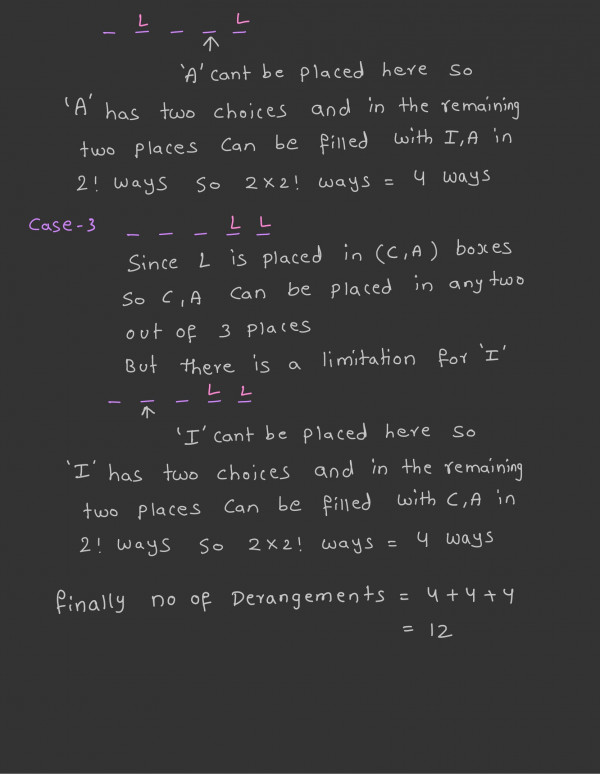 L L
_ _ _ _ _
↑
'A' cant be placed here so
'A' has two choices and in the remaining
two places can be filled with I,A in
2! ways so 2×2! ways = 4 ways
Case-3 _ _ _ L L
Since L is placed in (C,A) boxes
So C,A can be placed in any two
out of 3 places
But there is a limitation for 'I'
_ _ _ L L
↑
'I' cant be placed here so
'I' has two choices and in the remaining
two places can be filled with C,A in
2! ways so 2×2! ways = 4 ways
finally no of Derangements = 4+4+4
= 12